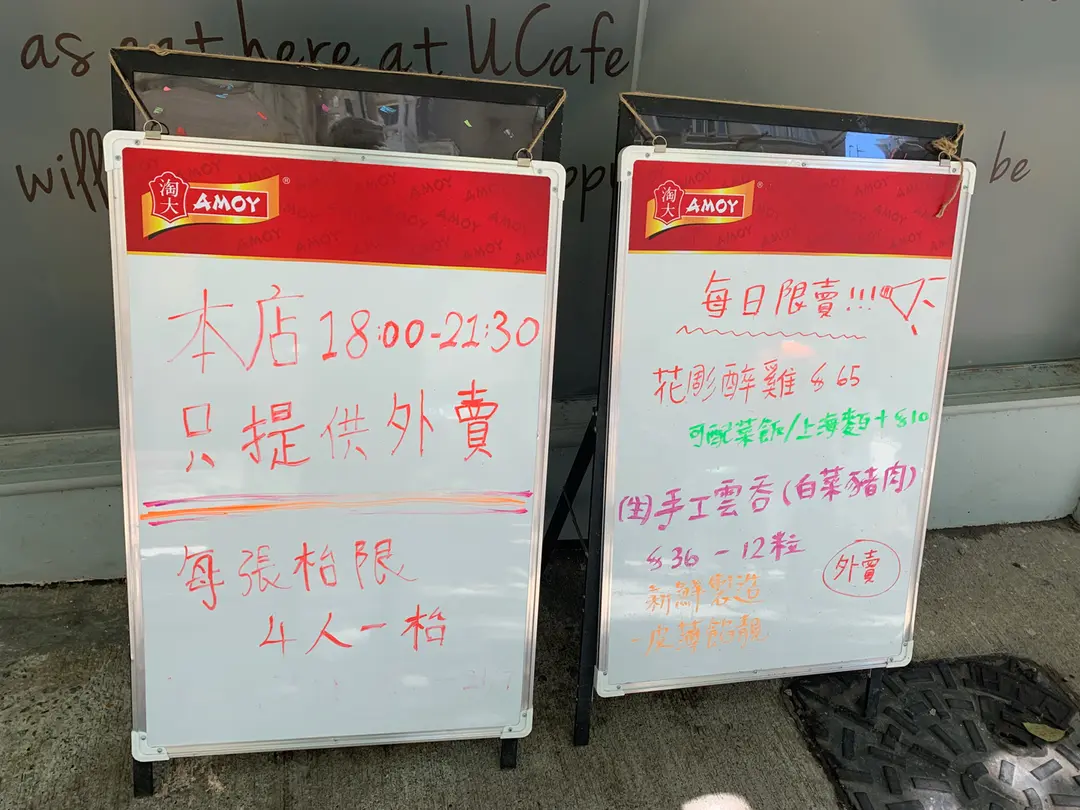 as eat here at UCafe
will
be
淘大
AMOY
本店18:00-21:30
只提供外賣
每張枱限
4人一枱
淘大
AMOY
每日限賣!!!
花彫醉雞 $65
可配菜飯/上海麵+$10
(生)手工雲吞(白菜豬肉)
$36 - 12粒
外賣
新鮮製造
-皮薄餡靚